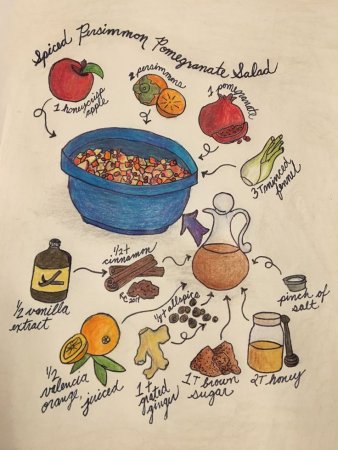 Spiced Persimmon Pomegranate Salad
1 honeycrisp
apple
2 persimmons
1 pomegranate
3 T minced
fennel
1/2 t
cinnamon
1/2 vanilla
extract
2017
1/4 t allspice
pinch of
salt
1/2
valencia
orange, juiced
1 t
grated
ginger
1 T brown
sugar
2T honey